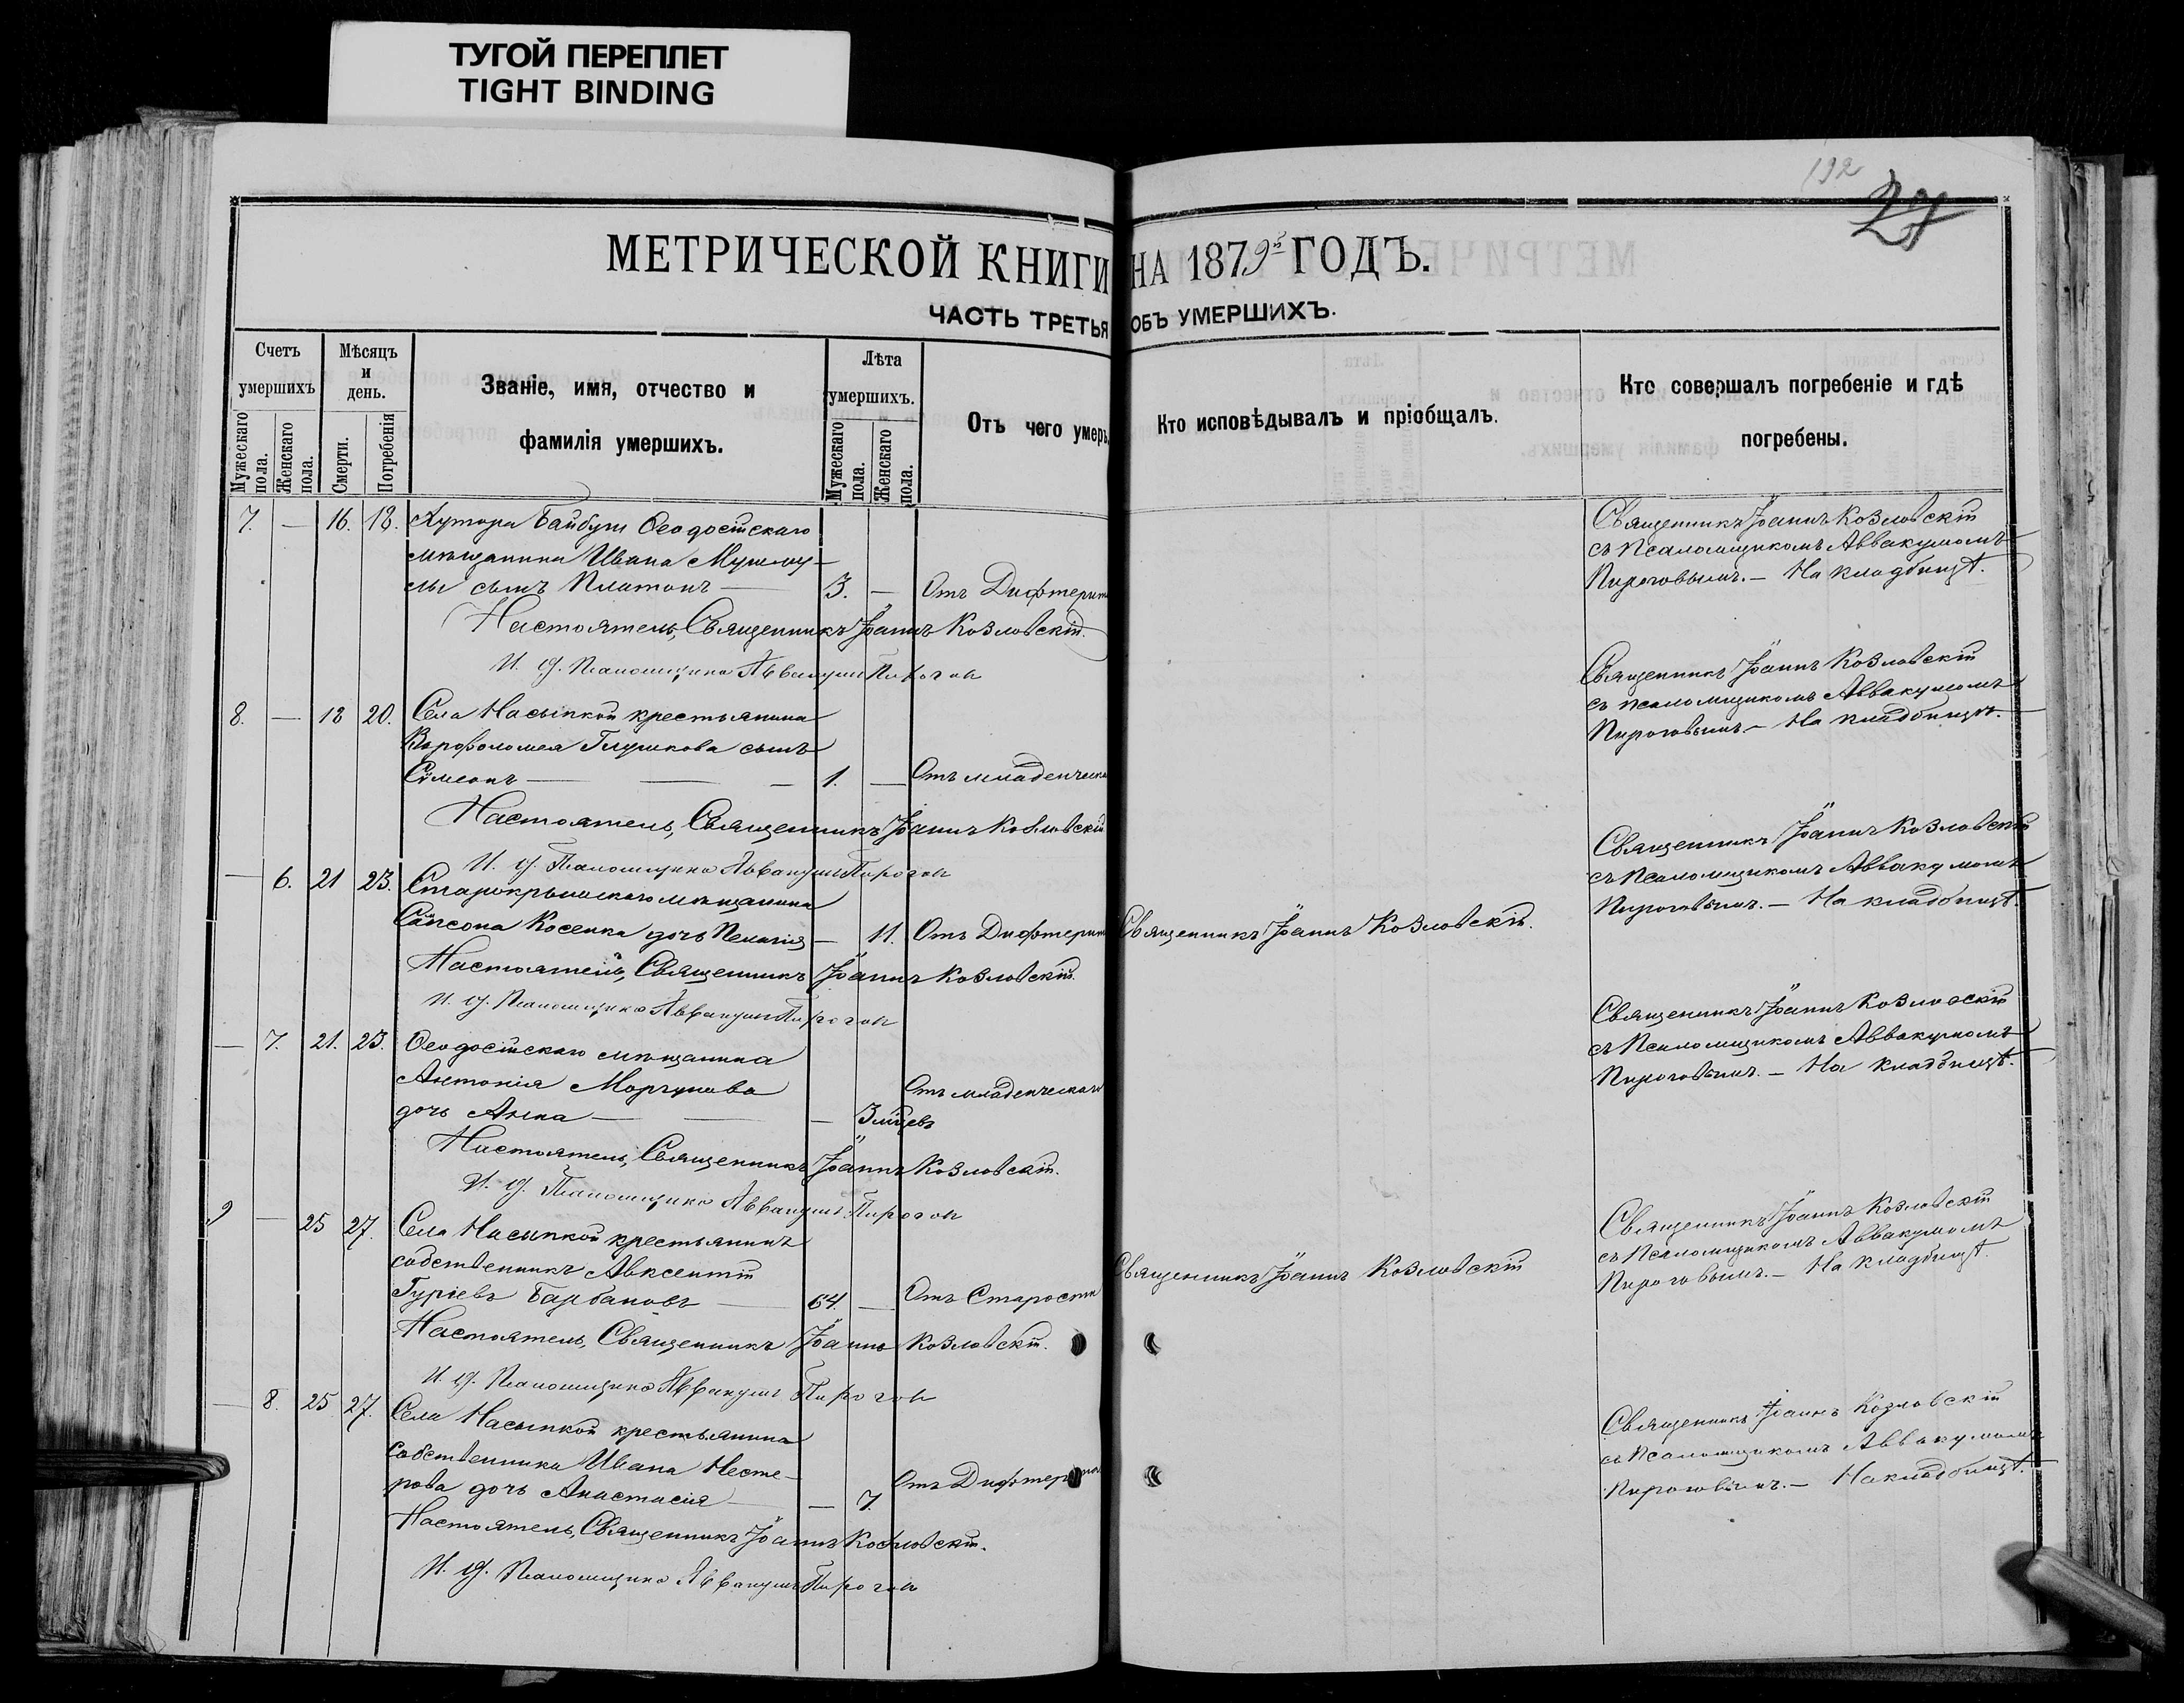 ТУГОЙ ПЕРЕПЛЕТ
TIGHT BINDING
192
27
МЕТРИЧЕСКОЙ КНИГИ НА 1879й ГОДЪ.
ЧАСТЬ ТРЕТЬЯ ОБЪ УМЕРШИХЪ.
Счетъ умершихъ
Мужескаго пола.
Женскаго пола.
Мѣсяцъ и день.
Смерти.
Погребенія
Званіе, имя, отчество и
фамилія умершихъ.
Лѣта умершихъ.
Мужескаго пола.
Женскаго пола.
Отъ чего умеръ
Кто исповѣдывалъ и пріобщалъ.
Кто совершалъ погребеніе и гдѣ
погребены.
7. — 16. 18. Хутора Байбуги Ѳеодосійскаго
мѣщанина Ивана
сынъ Платонъ — 3. — Отъ Дифтерит
Священникъ Іоаннъ Козловскій
съ Псаломщикомъ Аввакумомъ
Пироговымъ. — На кладбищѣ.
Настоятель, Священникъ Іоаннъ Козловскій.
И. д. Псаломщика Аввакумъ Пирогов
8. — 18 20. Села Насыпкой крестьянина
Варфоломея Глушкова сынъ
Сѵмеонъ — 1. — Отъ младенческ
Священникъ Іоаннъ Козловскій
съ псаломщикомъ Аввакумомъ
Пироговымъ. — На кладбищѣ.
Настоятель, Священникъ Іоаннъ Козловскій
И. д. Псаломщика Аввакумъ Пирогов
— 6. 21 23. Старокрымскаго мѣщанина
Сампсона Косенка дочь Пелагія — 11. Отъ Дифтерит
Священникъ Іоаннъ Козловскій.
Священникъ Іоаннъ Козловскій
съ Псаломщикомъ Аввакумомъ
Пироговымъ. — На кладбищѣ.
Настоятель, Священникъ Іоаннъ Козловскій.
И. д. Псаломщика Аввакумъ Пирогов
— 7. 21. 23. Ѳеодосійскаго мѣщанина
Антонія Моргунова
дочь Анна — — 3 мѣсцевъ Отъ младенческаго
Священникъ Іоаннъ Козловскій
съ Псаломщикомъ Аввакумомъ
Пироговымъ. — На кладбищѣ.
Настоятель, Священникъ Іоаннъ Козловскій.
И. д. Псаломщика Аввакумъ Пирогов
9 — 25 27. Села Насыпкой крестьянинъ
собственникъ Авксентій
Гуріевъ Барбановъ — 64. — Отъ Старости
Священникъ Іоаннъ Козловскій
Священникъ Іоаннъ Козловскій
съ Псаломщикомъ Аввакумомъ
Пироговымъ. — На кладбищѣ.
Настоятель, Священникъ Іоаннъ Козловскій.
И. д. Псаломщика Аввакумъ Пирогов
— 8. 25 27. Села Насыпкой крестьянина
собственника Ивана Несте-
рова дочь Анастасія — — 7. Отъ Дифтерита
Священникъ Іоаннъ Козловскій
съ Псаломщикомъ Аввакумомъ
Пироговымъ. — На кладбищѣ.
Настоятель, Священникъ Іоаннъ Козловскій.
И. д. Псаломщика Аввакумъ Пирогов